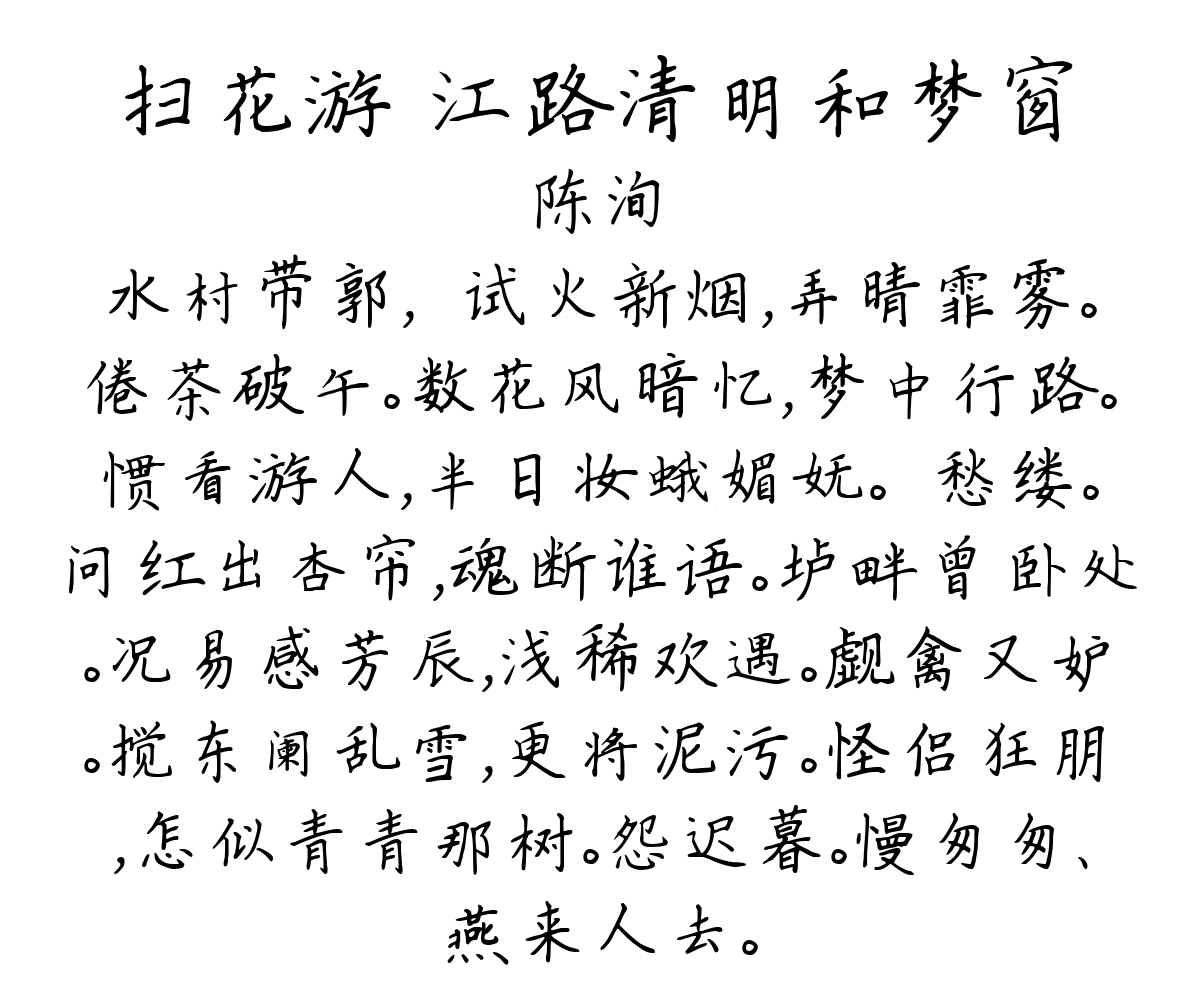 扫花游 江路清明和梦窗
陈洵
水村带郭，试火新烟，弄晴霏雾。
倦茶破午。数花风暗忆，梦中行路。
惯看游人，半日妆蛾媚妩。愁缕。
问红出杏帘，魂断谁语。垆畔曾卧处
。况易感芳辰，浅稀欢遇。觑禽又妒
。搅东阑乱雪，更将泥污。怪侣狂朋
，怎似青青那树。怨迟暮。慢匆匆、
燕来人去。